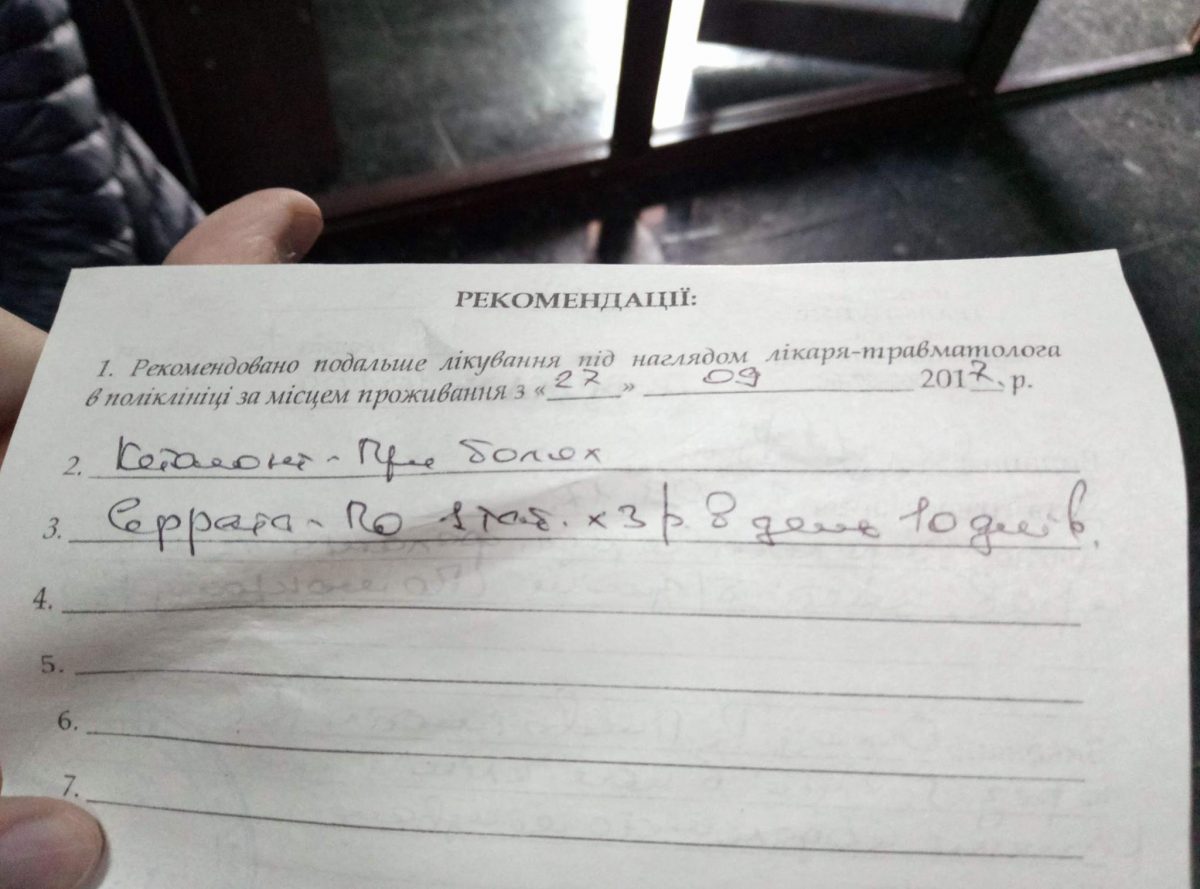 РЕКОМЕНДАЦІЇ:
1. Рекомендовано подальше лікування під наглядом лікаря-травматолога
в поліклініці за місцем проживання з «27» 09 2017. р.
2. - При болях
3. Серрата - По 1 таб. х 3 р. в день 10 днів.
4.
5.
6.
7.